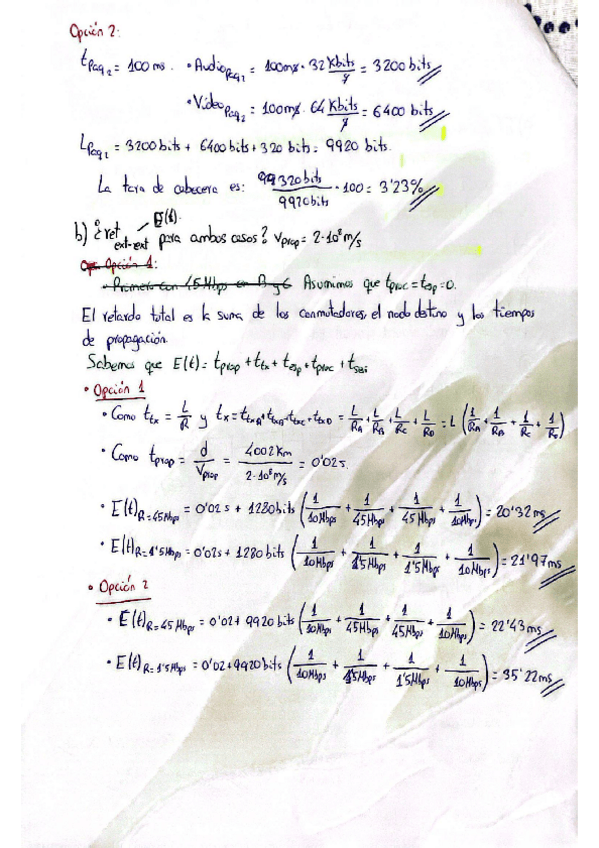 Opción 2:
tpaq2 = 100 ms. • Audiopaq2 = 100ms · 32 Kbits/s = 3200 bits
• Videopaq2 = 100ms · 64 Kbits/s = 6400 bits
Lpaq2 = 3200 bits + 6400 bits + 320 bits = 9920 bits.
La tara de cabecera es: 320 bits / 9920 bits · 100 = 3'23%
E(t).
b) ¿ret ext-ext para ambos casos? Vprop = 2·10⁸ m/s
Opción 1:
• Primero con 45 Mbps en B y C Asumimos que tproc = tesp = 0.
El retardo total es la suma de los conmutadores, el nodo destino y los tiempos
de propagación.
Sabemos que E(t) = tprop + ttx + tesp + tproc + tsai
• Opción 1
• Como ttx = L/R y tx = ttxA + ttxA + ttxC + ttxD = L/RA + L/RA + L/RC + L/RD = L (1/RA + 1/RA + 1/RC + 1/RD)
• Como tprop = d/Vprop = 4002 Km / 2·10⁸ m/s = 0'02 s.
• E(t)R=45Mbps = 0'02 s + 1280 bits (1/10Mbps + 1/45Mbps + 1/45Mbps + 1/10Mbps) = 20'32 ms
• E(t)R=1'5Mbps = 0'02s + 1280 bits (1/10Mbps + 1/1'5Mbps + 1/1'5Mbps + 1/10Mbps) = 21'97 ms
• Opción 2
• E(t)R=45Mbps = 0'02 + 9920 bits (1/10Mbps + 1/45Mbps + 1/45Mbps + 1/10Mbps) = 22'43 ms
• E(t)R=1'5Mbps = 0'02 + 9920 bits (1/10Mbps + 1/1'5Mbps + 1/1'5Mbps + 1/10Mbps) = 35'22 ms